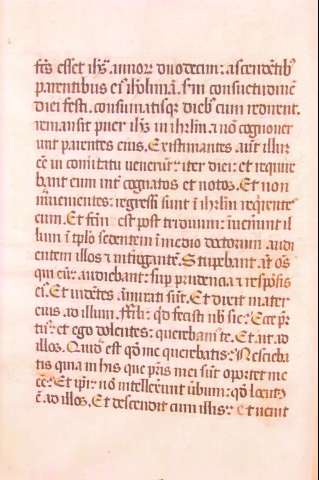 fcūs esset ihs. annoꝝ duodecim: ascendētibꝰ
parentibus eiꝰ iħolimā. s'm consuetudinē
diei festi. consumatisqꝫ diebꝰ cum redirent.
remansit puer ihs in ihrłm. ⁊ nō cognouer
unt parentes eius. Existimantes aūt illū eē
cē in comitatu uenerūt iter diei: et require
bant eum int' cognatos et notos. Et non
inuenientes: regressi sunt ī ihrłm reqrentes
eum. Et fcm est post triduum: īuenerūt il
lum ī tplo sedentem ī medio doctorum. audi
entem illos ⁊ intirogantē. Stupebant aūt oēs
qui eū audiebant: sup prudencia ⁊ respōsis
eiꝰ. Et uidētes. ammirati sūt. Et dixit mater
eius ad illum. Fili: qd fecisti nob sic? Ecce pr̄
tuꝰ et ego dolentes: querebamꝰ te. Et ait ad
illos. Quid est qd me querebatis? Nesciebа
tis quia in his que pris mei sūt oportet me
eē? Et ipi: nō intellexerūt ūbum: qd locutꝰ
ē. ad illos. Et descendit cum illis: et uenit